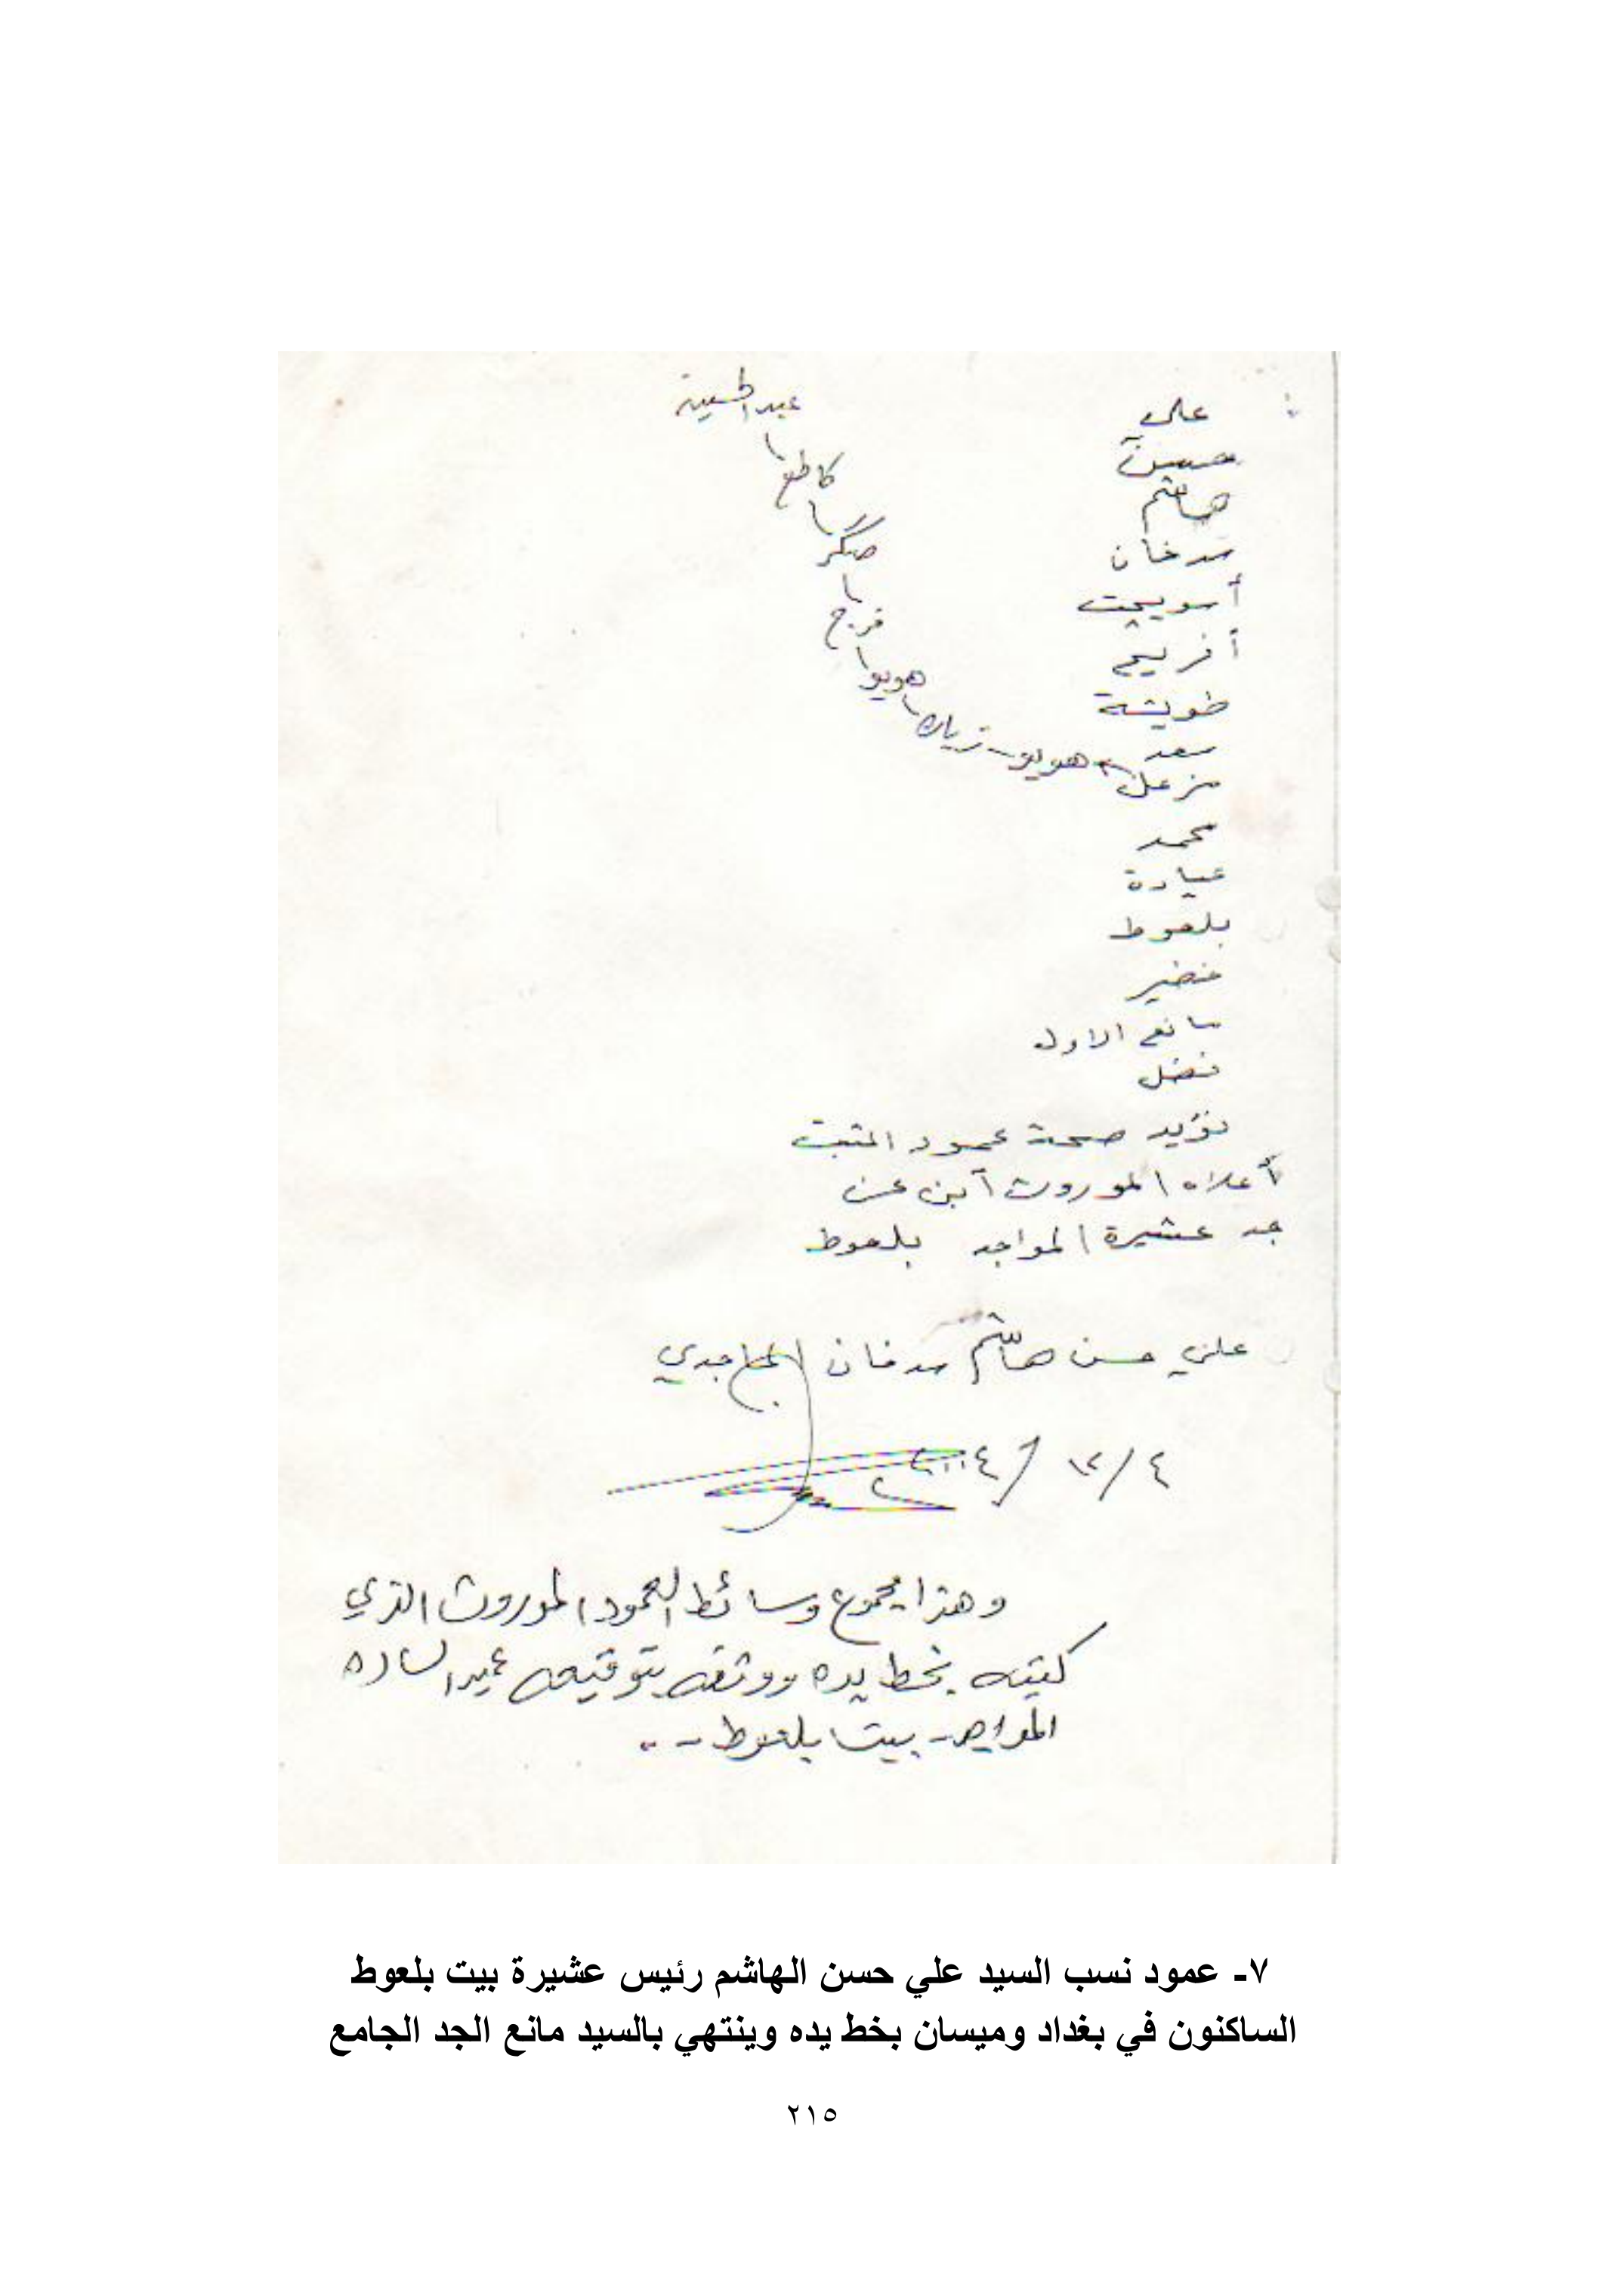 علي
حسين
هاشم
سدخان
أسويچت
أفريج
طويشة
سعد
مزعل
محمد
عيادة
بلعوط
خضير
مانع الاول
فضل
عبد الحسين
كاطع
صگر
فرج
هويو
زيارة
هويو
نؤيد صحة عمود المثبت
أعلاه الموروث آبن عن
جد عشيرة المواجد بلعوط
علي حسن هاشم سدخان الماجدي
٤/١٢/٢٠٠٤
وهذا مجموع وسائط العمود الموروث الذي
كتبته بخط يده ووثقه بتوقيعه عميد الساده
المواجد - بيت بلعوط - ..
٧- عمود نسب السيد علي حسن الهاشم رئيس عشيرة بيت بلعوط
الساكنون في بغداد وميسان بخط يده وينتهي بالسيد مانع الجد الجامع
٢١٥